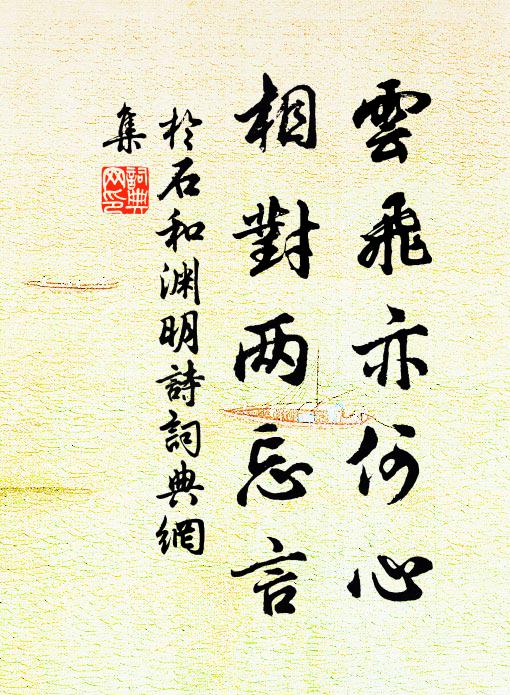 雲飛亦何心
相對兩忘言
於石和淵明詩詞典網
集
詞典
网印